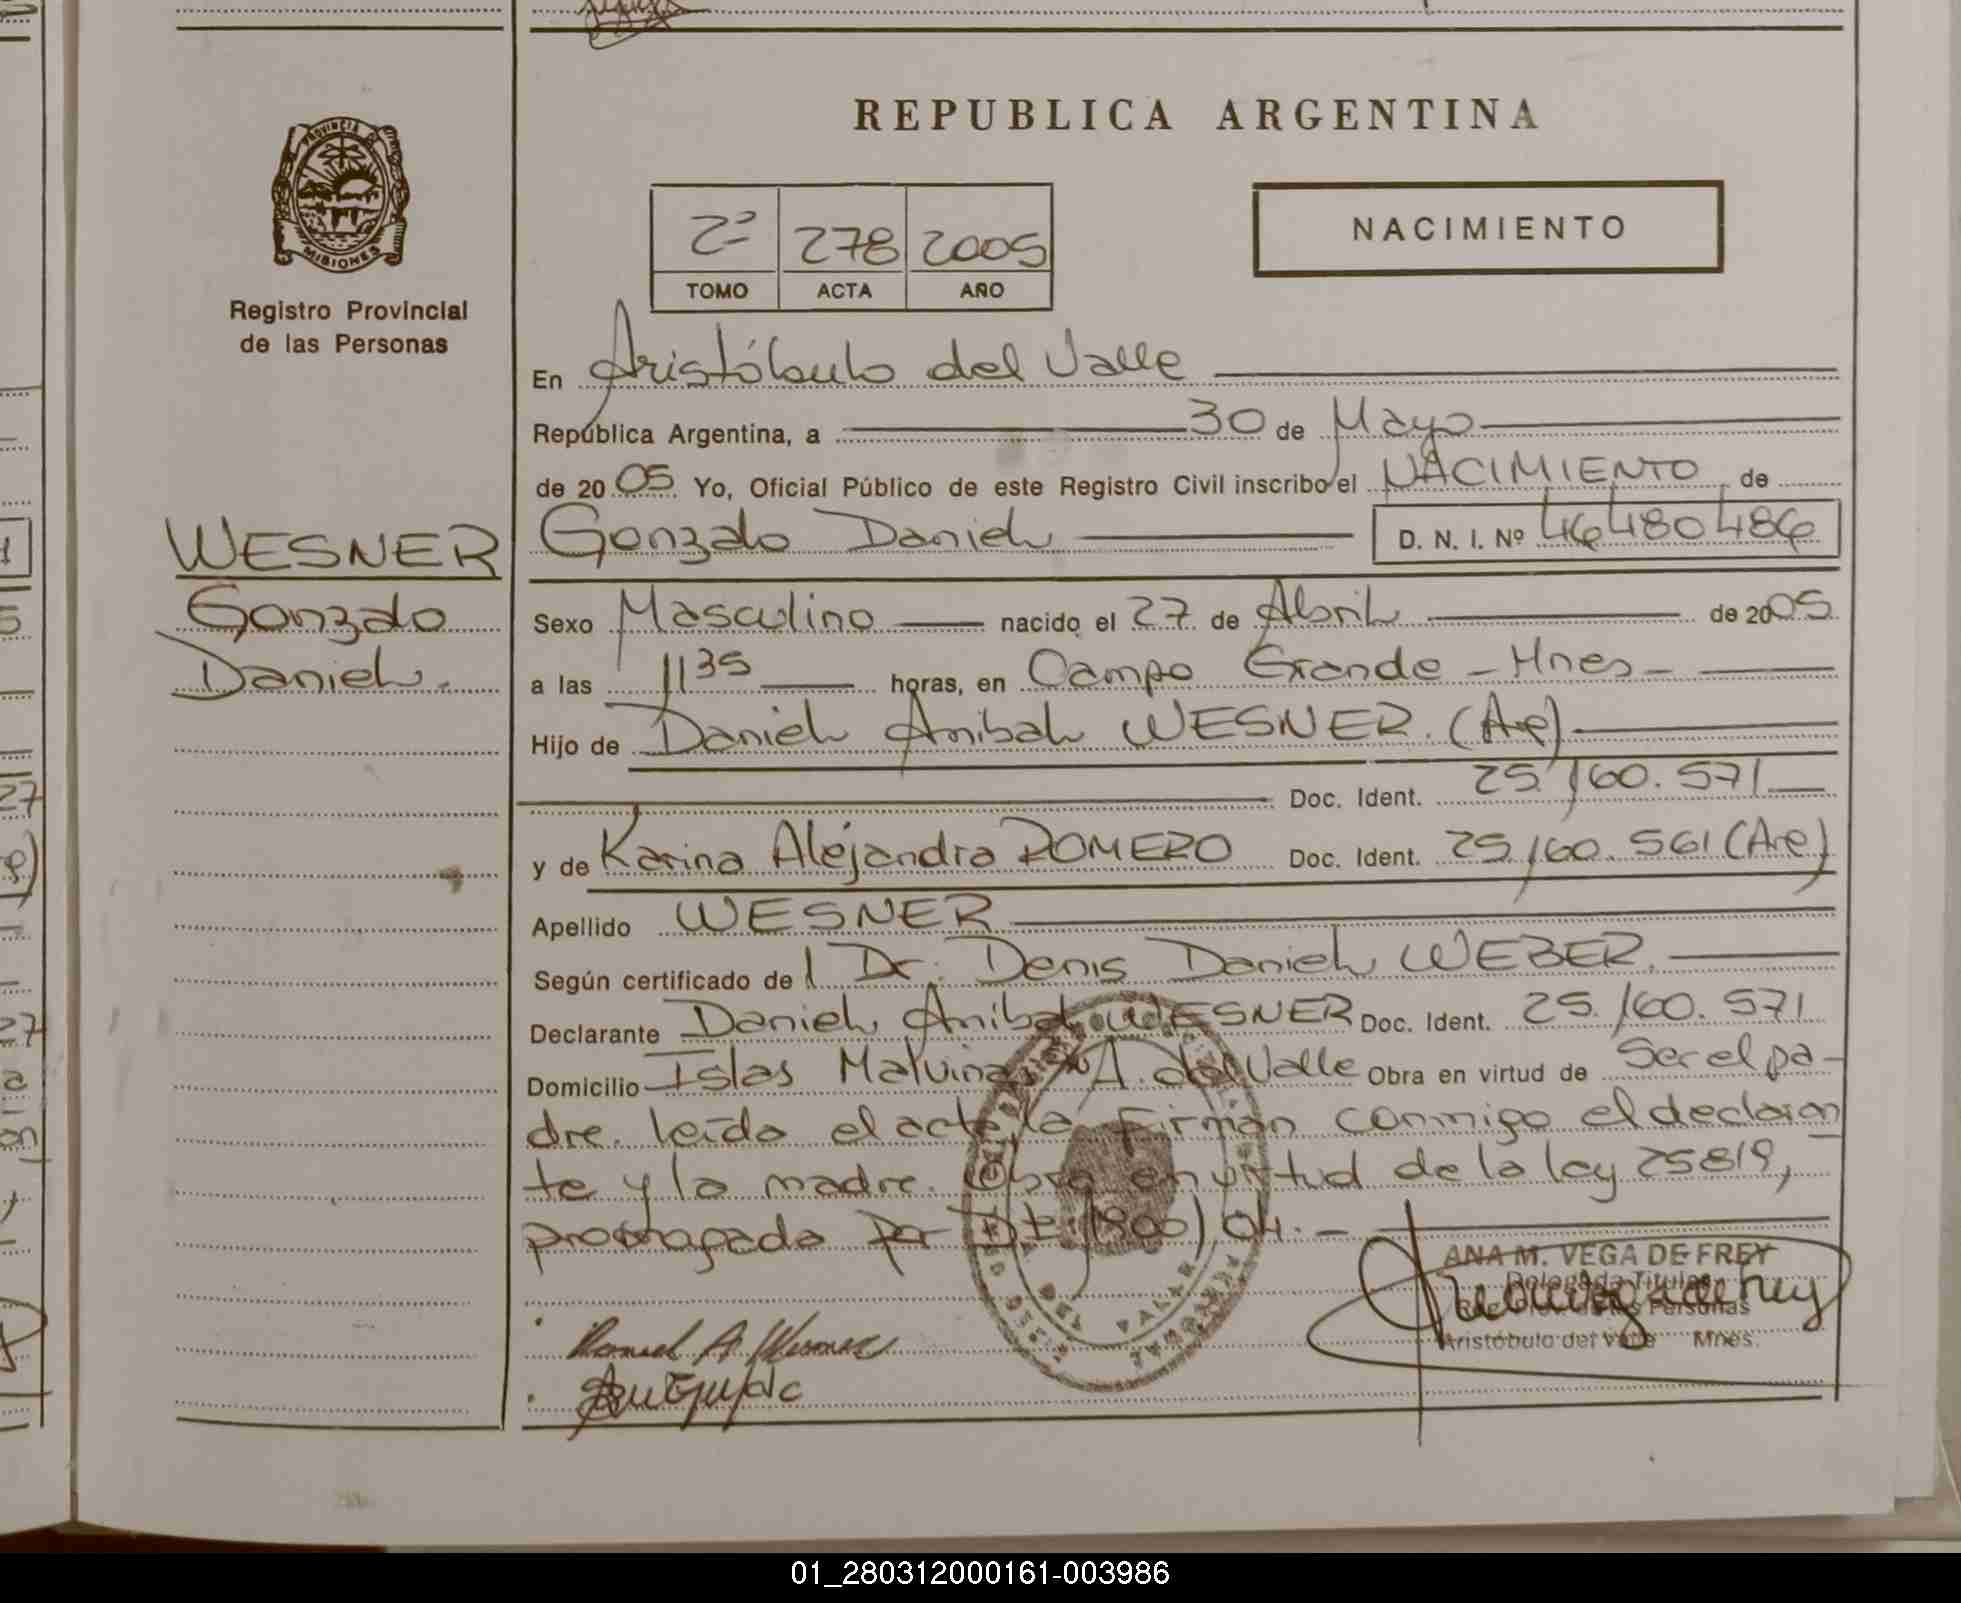 REPUBLICA ARGENTINA
PROVINCIA DE
MISIONES
Registro Provincial
de las Personas
2º 278 2005
TOMO ACTA AÑO
NACIMIENTO
En Aristóbulo del Valle
República Argentina, a 30 de Mayo
de 2005 Yo, Oficial Público de este Registro Civil inscribo el NACIMIENTO de
WESNER
Gonzalo
Daniel.
Gonzalo Daniel D. N. I. Nº 46480486
Sexo Masculino nacido el 27 de Abril de 2005
a las 11 35 horas, en Campo Grande - Mnes -
Hijo de Daniel Anibal WESNER. (Arg)
Doc. Ident. 25.160.571
y de Karina Alejandra ROMERO Doc. Ident. 25.160.561 (Arg)
Apellido WESNER
Según certificado de l Dr. Denis Daniel WEBER.
Declarante Daniel Anibal WESNER Doc. Ident. 25.160.571
Domicilio Islas Malvinas A. del Valle Obra en virtud de Ser el pa-
dre. leída el acta, la firman conmigo el declaran
te y la madre. Obra en virtud de la ley 25819,
prorrogada por 1800/04. -
ANA M. VEGA DE FREY
Delegada Titular
de las Personas
Aristóbulo del Valle Mnes.
DEL VALLE
01_280312000161-003986